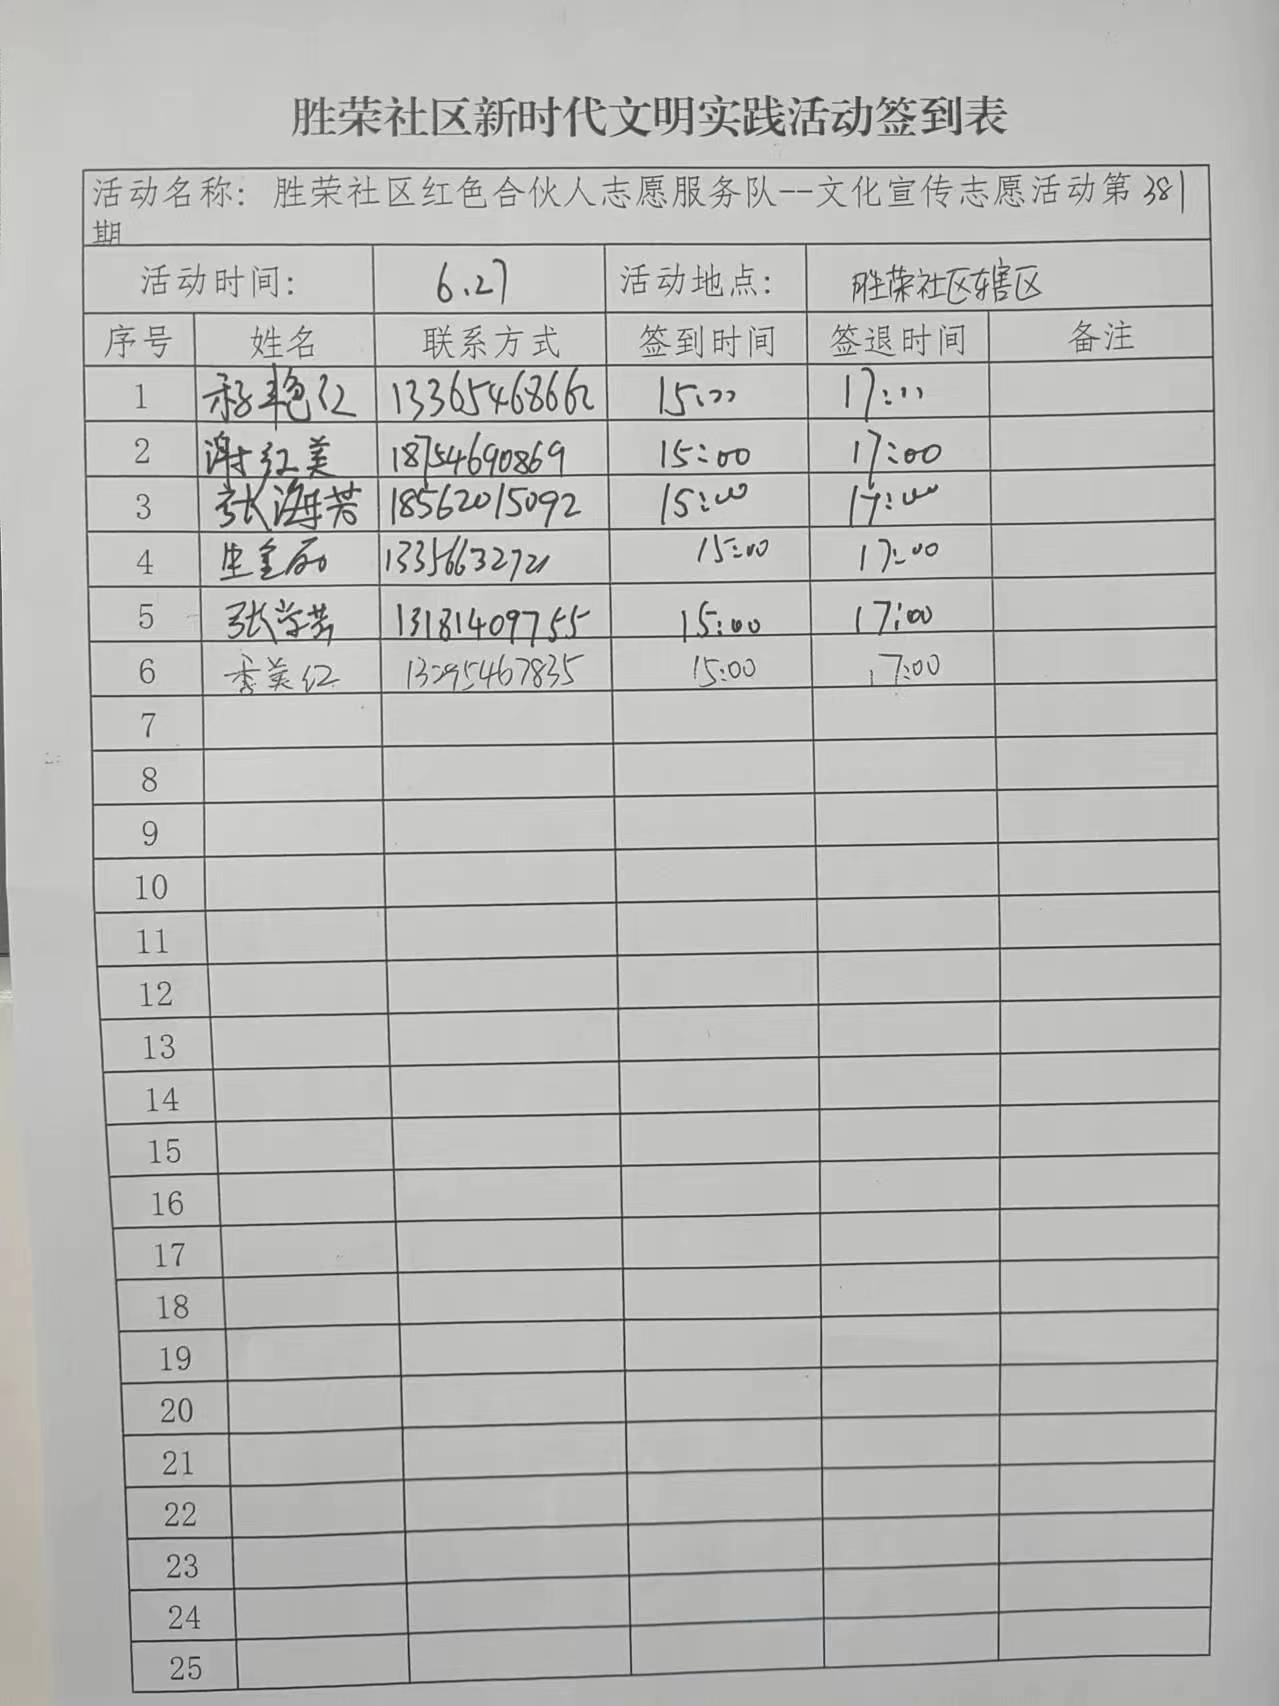 胜荣社区新时代文明实践活动签到表
活动名称: 胜荣社区红色合伙人志愿服务队--文化宣传志愿活动第381
期
活动时间: 6.27 活动地点: 胜荣社区辖区
序号 姓名 联系方式 签到时间 签退时间 备注
1 艳红 13365468662 15:00 17:00
2 谢红美 18754690869 15:00 17:00
3 张海芳 18562015092 15:00 17:00
4 15:00 17:00
5 张学芸 13181409755 15:00 17:00
6 李美红 13295467835 15:00 17:00
7
8
9
10
11
12
13
14
15
16
17
18
19
20
21
22
23
24
25